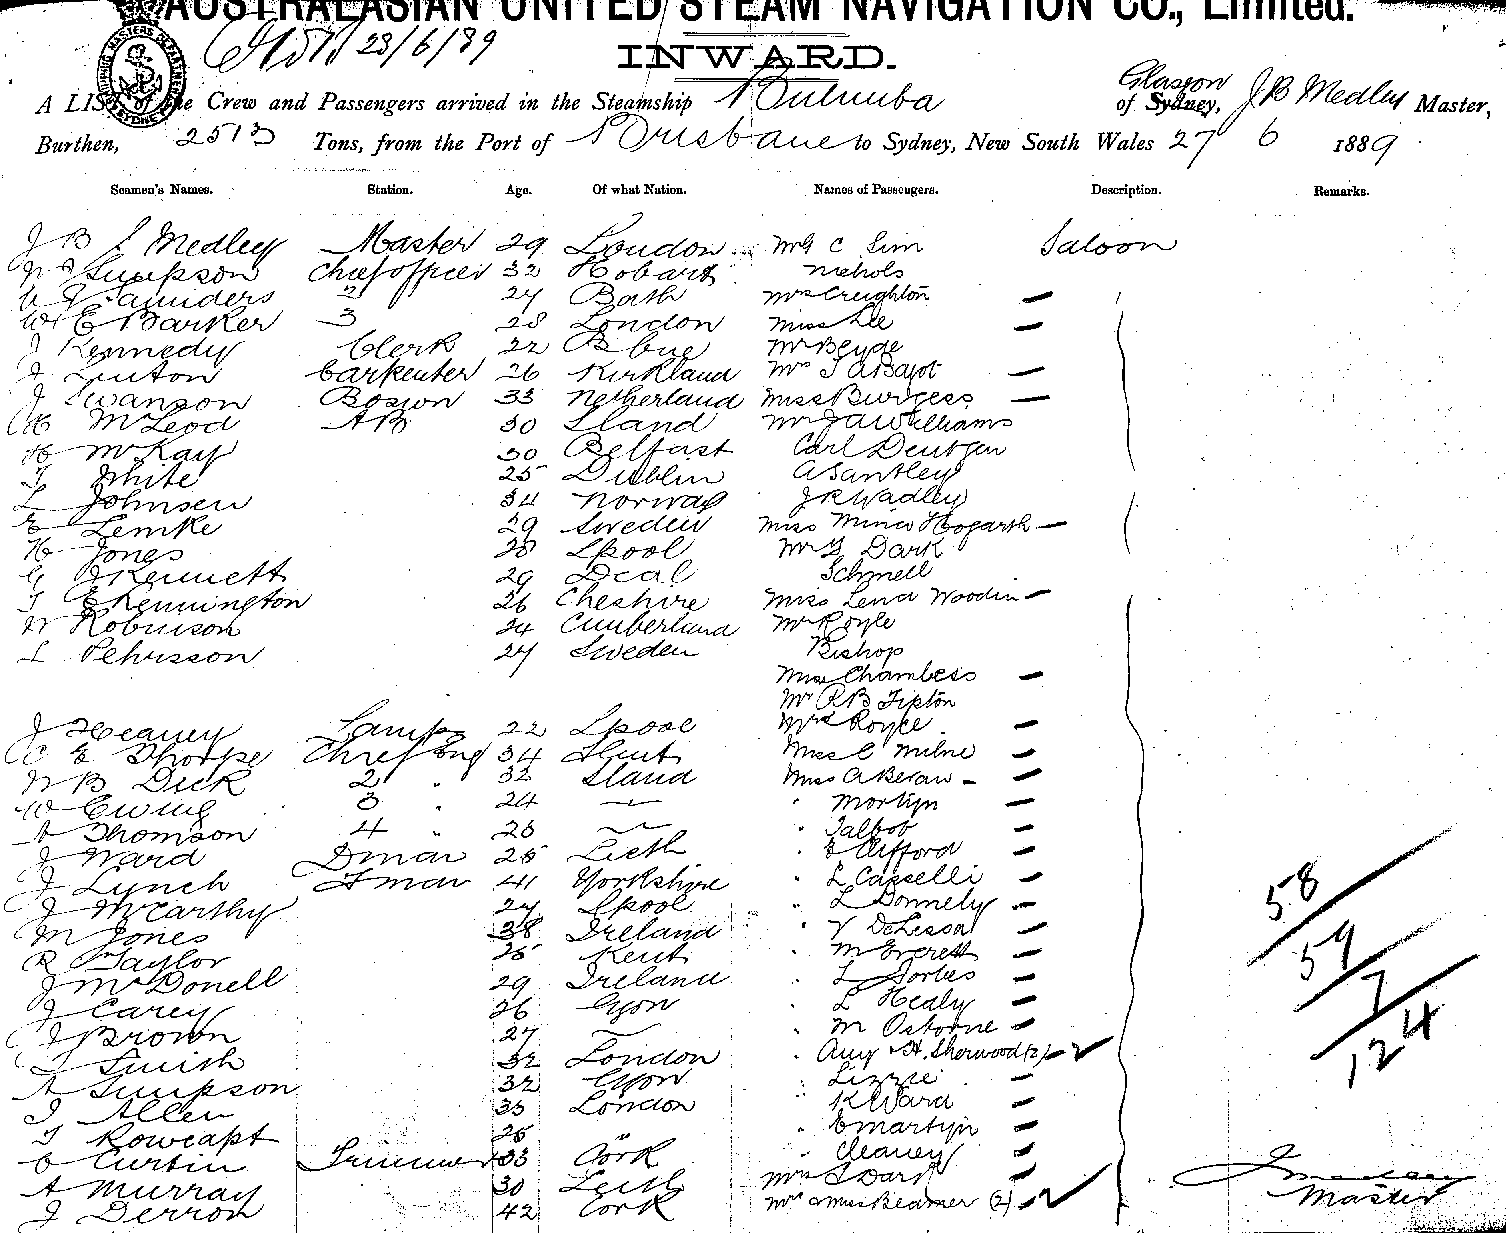 AUSTRALASIAN UNITED STEAM NAVIGATION CO., Limited.
28/6/89
INWARD.
A LIST of the Crew and Passengers arrived in the Steamship Bulimba of Sydney, Glasgow J B Medley Master,
Burthen, 2513 Tons, from the Port of Brisbane to Sydney, New South Wales 27 6 1889
Seamen's Names. Station. Age. Of what Nation. Names of Passengers. Description. Remarks.
J B S Medley Master 29 London Mr G C Sim Saloon
Simpson Chief officer 32 Hobart Nichols
Saunders 2 27 Bath Mrs Creighton —
W E Barker 3 28 London Miss Lee —
J Kennedy Clerk 22 Mr Beyde
J Linton Carpenter 26 Kirkland Mrs Bajot —
J Swanson Bosson 33 Netherland Miss Burgess —
McLeod AB 30 Sland Mr J A Williams
McKay 30 Belfast Carl Deutgen
T White 25 Dublin A Santley
L Johnsen 34 Norway J R Wadley
E Lemke 29 Sweden Miss Mina Hogarth —
H Jones 28 Lpool Mr G Dark
G J Kennett 29 Deal Schmell
T E Kennington 26 Cheshire Miss Lena Woodin —
W Robinson 24 Cumberland Mr Royle
L Pehrsson 27 Sweden Bishop
Miss Chambess —
Mr R B Tipton
J Heaney Lamps 22 Lpool Mrs Royce —
C E Thorpe Chief Eng 34 Miss C Milne —
W B Dick 2 " 32 Sland Miss A Beran -
W Ewing 3 " 24 — " Mortyn —
A Thomson 4 " 26 — " Talbot —
J Ward Dman 25 Leith " E Clifford —
J Lynch Fman 41 Yorkshire " L Casselli —
J McCarthy 27 Lpool " L Donnely —
M Jones 38 Ireland " V DeLissa —
R Taylor 25 Kent " M Everett —
J McDonell 29 Ireland " L Forbes —
J Carey 26 " L Healy —
J Brown 27 — " M Osborne —
Smith 32 London " Amy & H. Sherwood (2) — 2
A Simpson 32 " Lizzie —
J Allen 35 London " K Ward —
T Rowcapt 25 " E Martyn —
C Curtin Trimmer 33 Cork " Cleaney —
A Murray 30 Leith Mrs G Dark —
J Derron 42 Cork Mrs & Miss Beamer (2) — 2
58
59
7
124
J Medley
Master